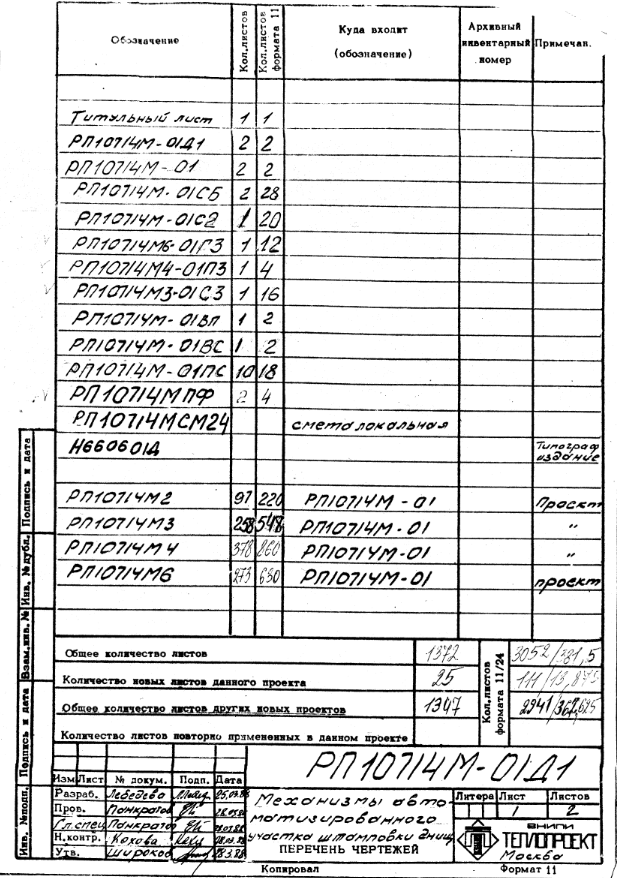 Обозначение Кол.листов Кол.листов формата 11 Куда входит (обозначение) Архивный инвентарный номер Примечан.
Титульный лист 1 1
РП10714М-01Д1 2 2
РП10714М-01 2 2
РП10714М-01СБ 2 28
РП10714М-01С2 1 20
РП10714М6-01Г3 1 12
РП10714М4-01П3 1 4
РП10714М3-01С3 1 16
РП10714М-01ВП 1 2
РП10714М-01ВС 1 2
РП10714М-01ПС 10 18
РП10714МПФ 2 4
РП10714МСМ24 смета локальная
Н660601Д Типограф издание
РП10714М2 97 220 РП10714М-01 Проект
РП10714М3 258 548 РП10714М-01 "
РП10714М4 378 860 РП10714М-01 "
РП10714М6 273 630 РП10714М-01 проект
Общее количество листов 1372
Количество новых листов данного проекта 25
Общее количество листов других новых проектов 1347
Количество листов повторно примененных в данном проекте
Кол.листов формата 11/24
3052/381,5
111/13,875
2941/367,625
РП10714М-01Д1
Изм Лист № докум. Подп. Дата
Разраб. Лебедева
Пров. Панкратов
Гл.спец Панкратов
Н.контр. Кохова
Утв. Широков
Механизмы авто-
матизированного
участка штамповки днищ
ПЕРЕЧЕНЬ ЧЕРТЕЖЕЙ
Литера Лист Листов
1 2
ВНИПИ
ТЕПЛОПРОЕКТ
Москва
Копировал Формат 11
Инв. №подл. Подпись и дата Взам.инв. № Инв. №дубл. Подпись и дата